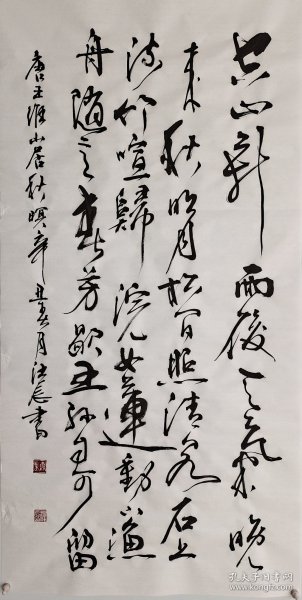 空山新雨後天氣晚
來秋明月松間照清泉石上
流竹喧歸浣女蓮動下漁
舟隨意春芳歇王孫自可留
唐王維山居秋暝 辛丑春月 書
孔夫子旧书网